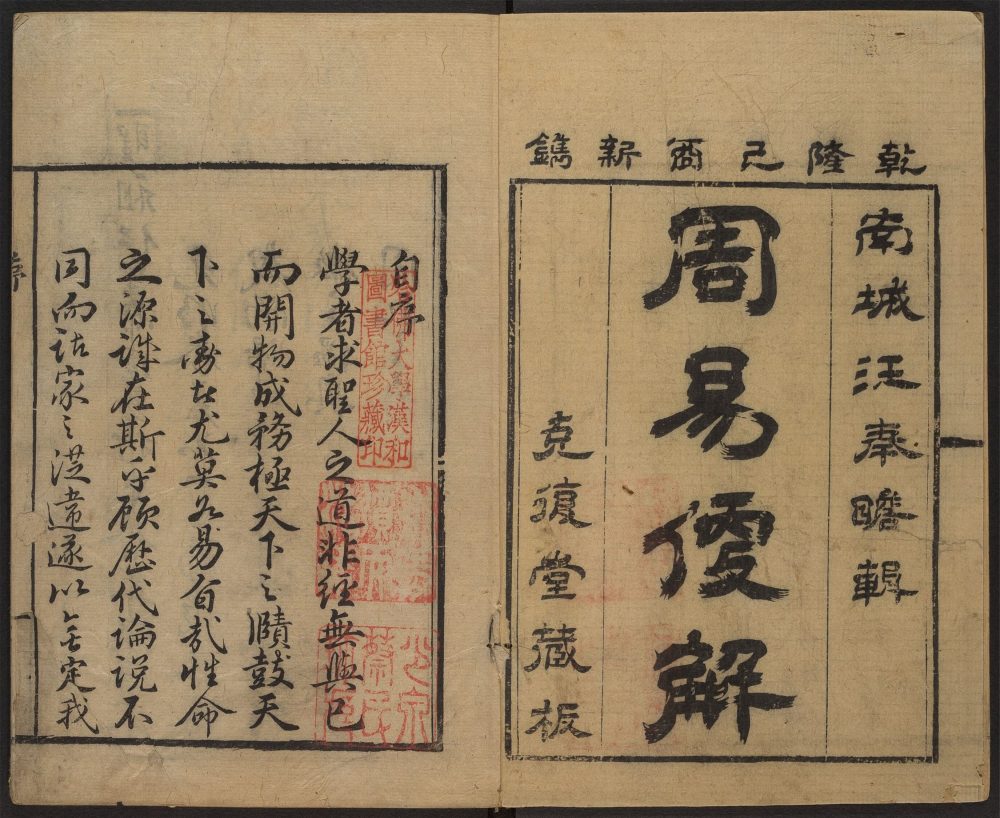 乾隆己酉新鐫
南城汪奉瞻輯
周易便解
克復堂藏板
自序
學者求聖人之道非經無與已
而開物成務極天下之賾鼓天
下之動者尤莫若易旨哉性命
之源誰在斯乎顧歷代論說不
同而訪家之從違遂以無定我
序
大學漢和
圖書館珍藏印